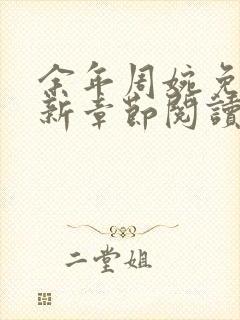 余年周婉免
新章節閱讀
二堂姐